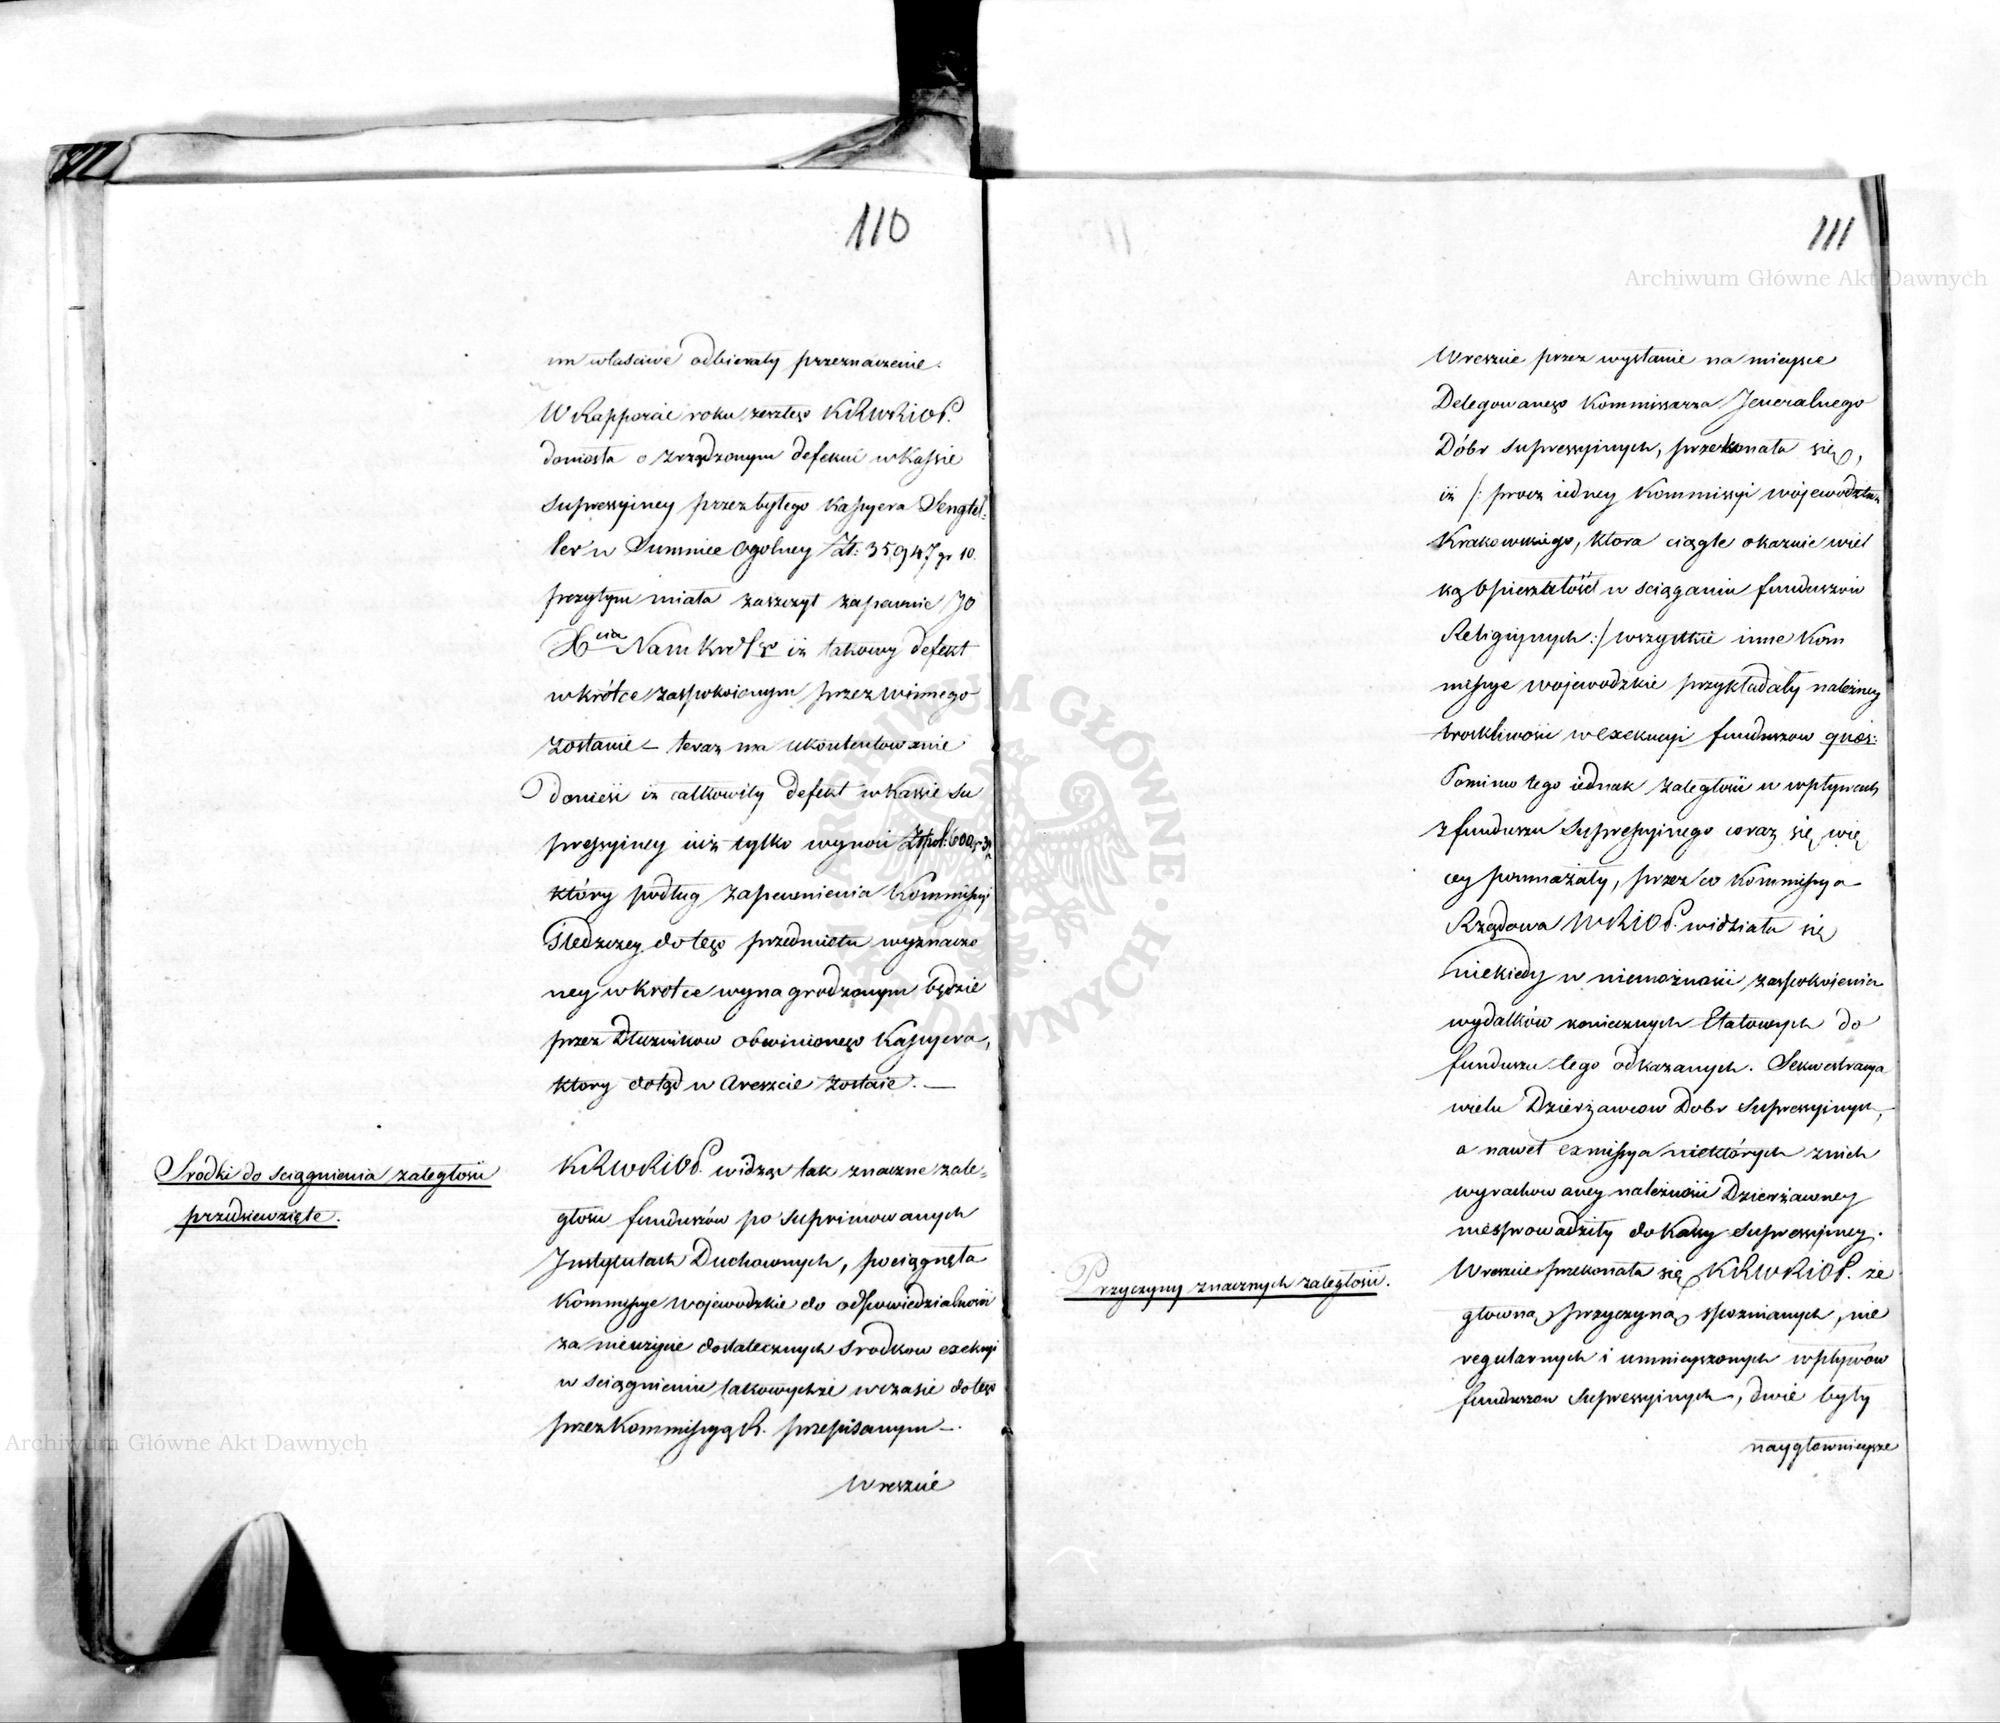 110
im właściwe odbierały przeznaczenie.
W Rapporcie roku zeszłego KRWRiOP.
doniosła o zrządzonym defekcie w Kassie
Supressyiney przez byłego Kassyera Sengtel:
ler w Summie Ogolney Zł: 35,947 gr 10.
przytym miała zaszczyt zapewnić JO
Xcia Namk iż takowy defekt
wkrótce zaspokoionym przez winnego
zostanie – teraz ma ukontentowanie
Donieść iż całkowity defekt w Kassie Su
pressyiney iuż tylko wynosi Złpol: 600,
który podług zapewnienia Kommissyi
Śledzczey do tego przedmiotu wyznaczo
ney wkrotce wynagrodzonym będzie
przez Dłużnikow obwinionego Kassyera,
ktory dotąd w Areszcie zostaie. —
Srodki do sciągnienia zaległosci
przedsiewzięte.
KRWRiOP. widząc tak znaczne zale=
głosci funduszów po Suprimowanych
Instytutach Duchownych, pociągnęła
Kommissye Wojewodzkie do odpowiedzialnosci
za nieużycie dostatecznych Srodkow exekucyi
w sciągnieniu takowychże w czasie do tego
przez Kommissyą R. przepisanym —.
Wreszcie
111
Wreszcie przez wysłanie na mieysce
Delegowanego Kommissarza Jeneralnego
Dóbr Supressyinych, przekonała się,
iż /: procz iedney Kommissyi Wojewodztwa
Krakowskiego, ktora ciągle okazuie wiel
ką Opieszałość w sciąganiu funduszów
Religijnych :/ wszystkie inne Kom
missye Wojewodzkie przykładały należney
troskliwosci w Exekucyi funduszow quaes:
Pomimo tego iednak zaległosci w wpływach
z funduszu Supressyinego coraz się wię
cey pomnażały, przez co Kommissya
Rządowa WRiOP. widziała się
niekiedy w niemożnosci zaspokoienia
wydatków koniecznych Etatowych do
funduszu tego odkazanych. Sekwestracya
wielu Dzierżawcow Dobr Supressyinych,
a nawet exmissya niektórych z nich
wyrachowaney należnosci Dzierżawney
niesprowadziły do Kassy Supressyiney.
Przyczyny znacznych zaległosci.
Wreszcie przekonała się KRWRiOP. że
głowną przyczyną spoznianych, nie
regularnych i umnieyszonych wpływów
funduszow Supressyinych, dwie były
naygłownieysze
Archiwum Główne Akt Dawnych
Archiwum Główne Akt Dawnych
ARCHIWUM GŁÓWNE · AKT DAWNYCH ·